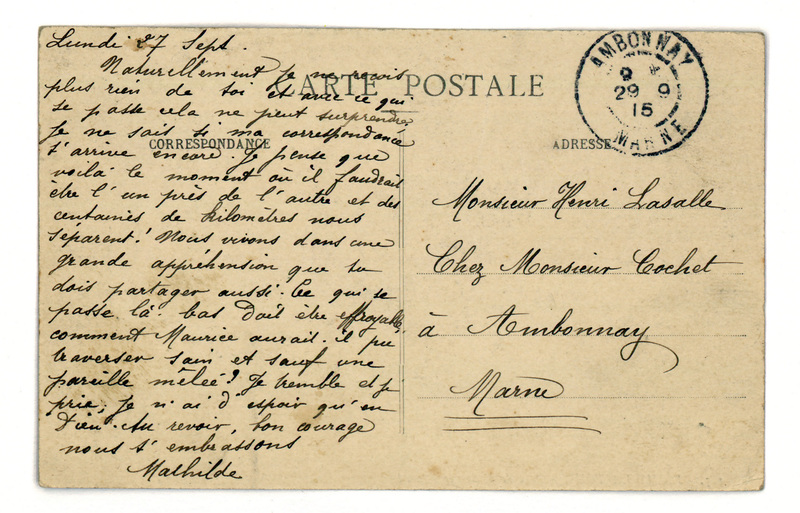 Lundi 27 Sept.
Naturellement je ne reçois
plus rien de toi et avec ce qui
se passe cela ne peut surprendre.
Je ne sais si ma correspondance
t'arrive encore. Je pense que
voilà le moment où il faudrait
être l'un près de l'autre et des
centaines de kilomètres nous
séparent! Nous vivons dans une
grande appréhension que tu
dois partager aussi. Ce qui se
passe là-bas doit être effroyable,
comment Maurice aurait-il pu
traverser sain et sauf une
pareille mêlée? Je tremble et je
prie, je n'ai d'espoir qu'en
Dieu. Au revoir, bon courage
nous t'embrassons
Mathilde
CARTE POSTALE
CORRESPONDANCE
ADRESSE
AMBONNAY
29 9
15
MARNE
Monsieur Henri Lasalle
Chez Monsieur Cochet
à Ambonnay
Marne